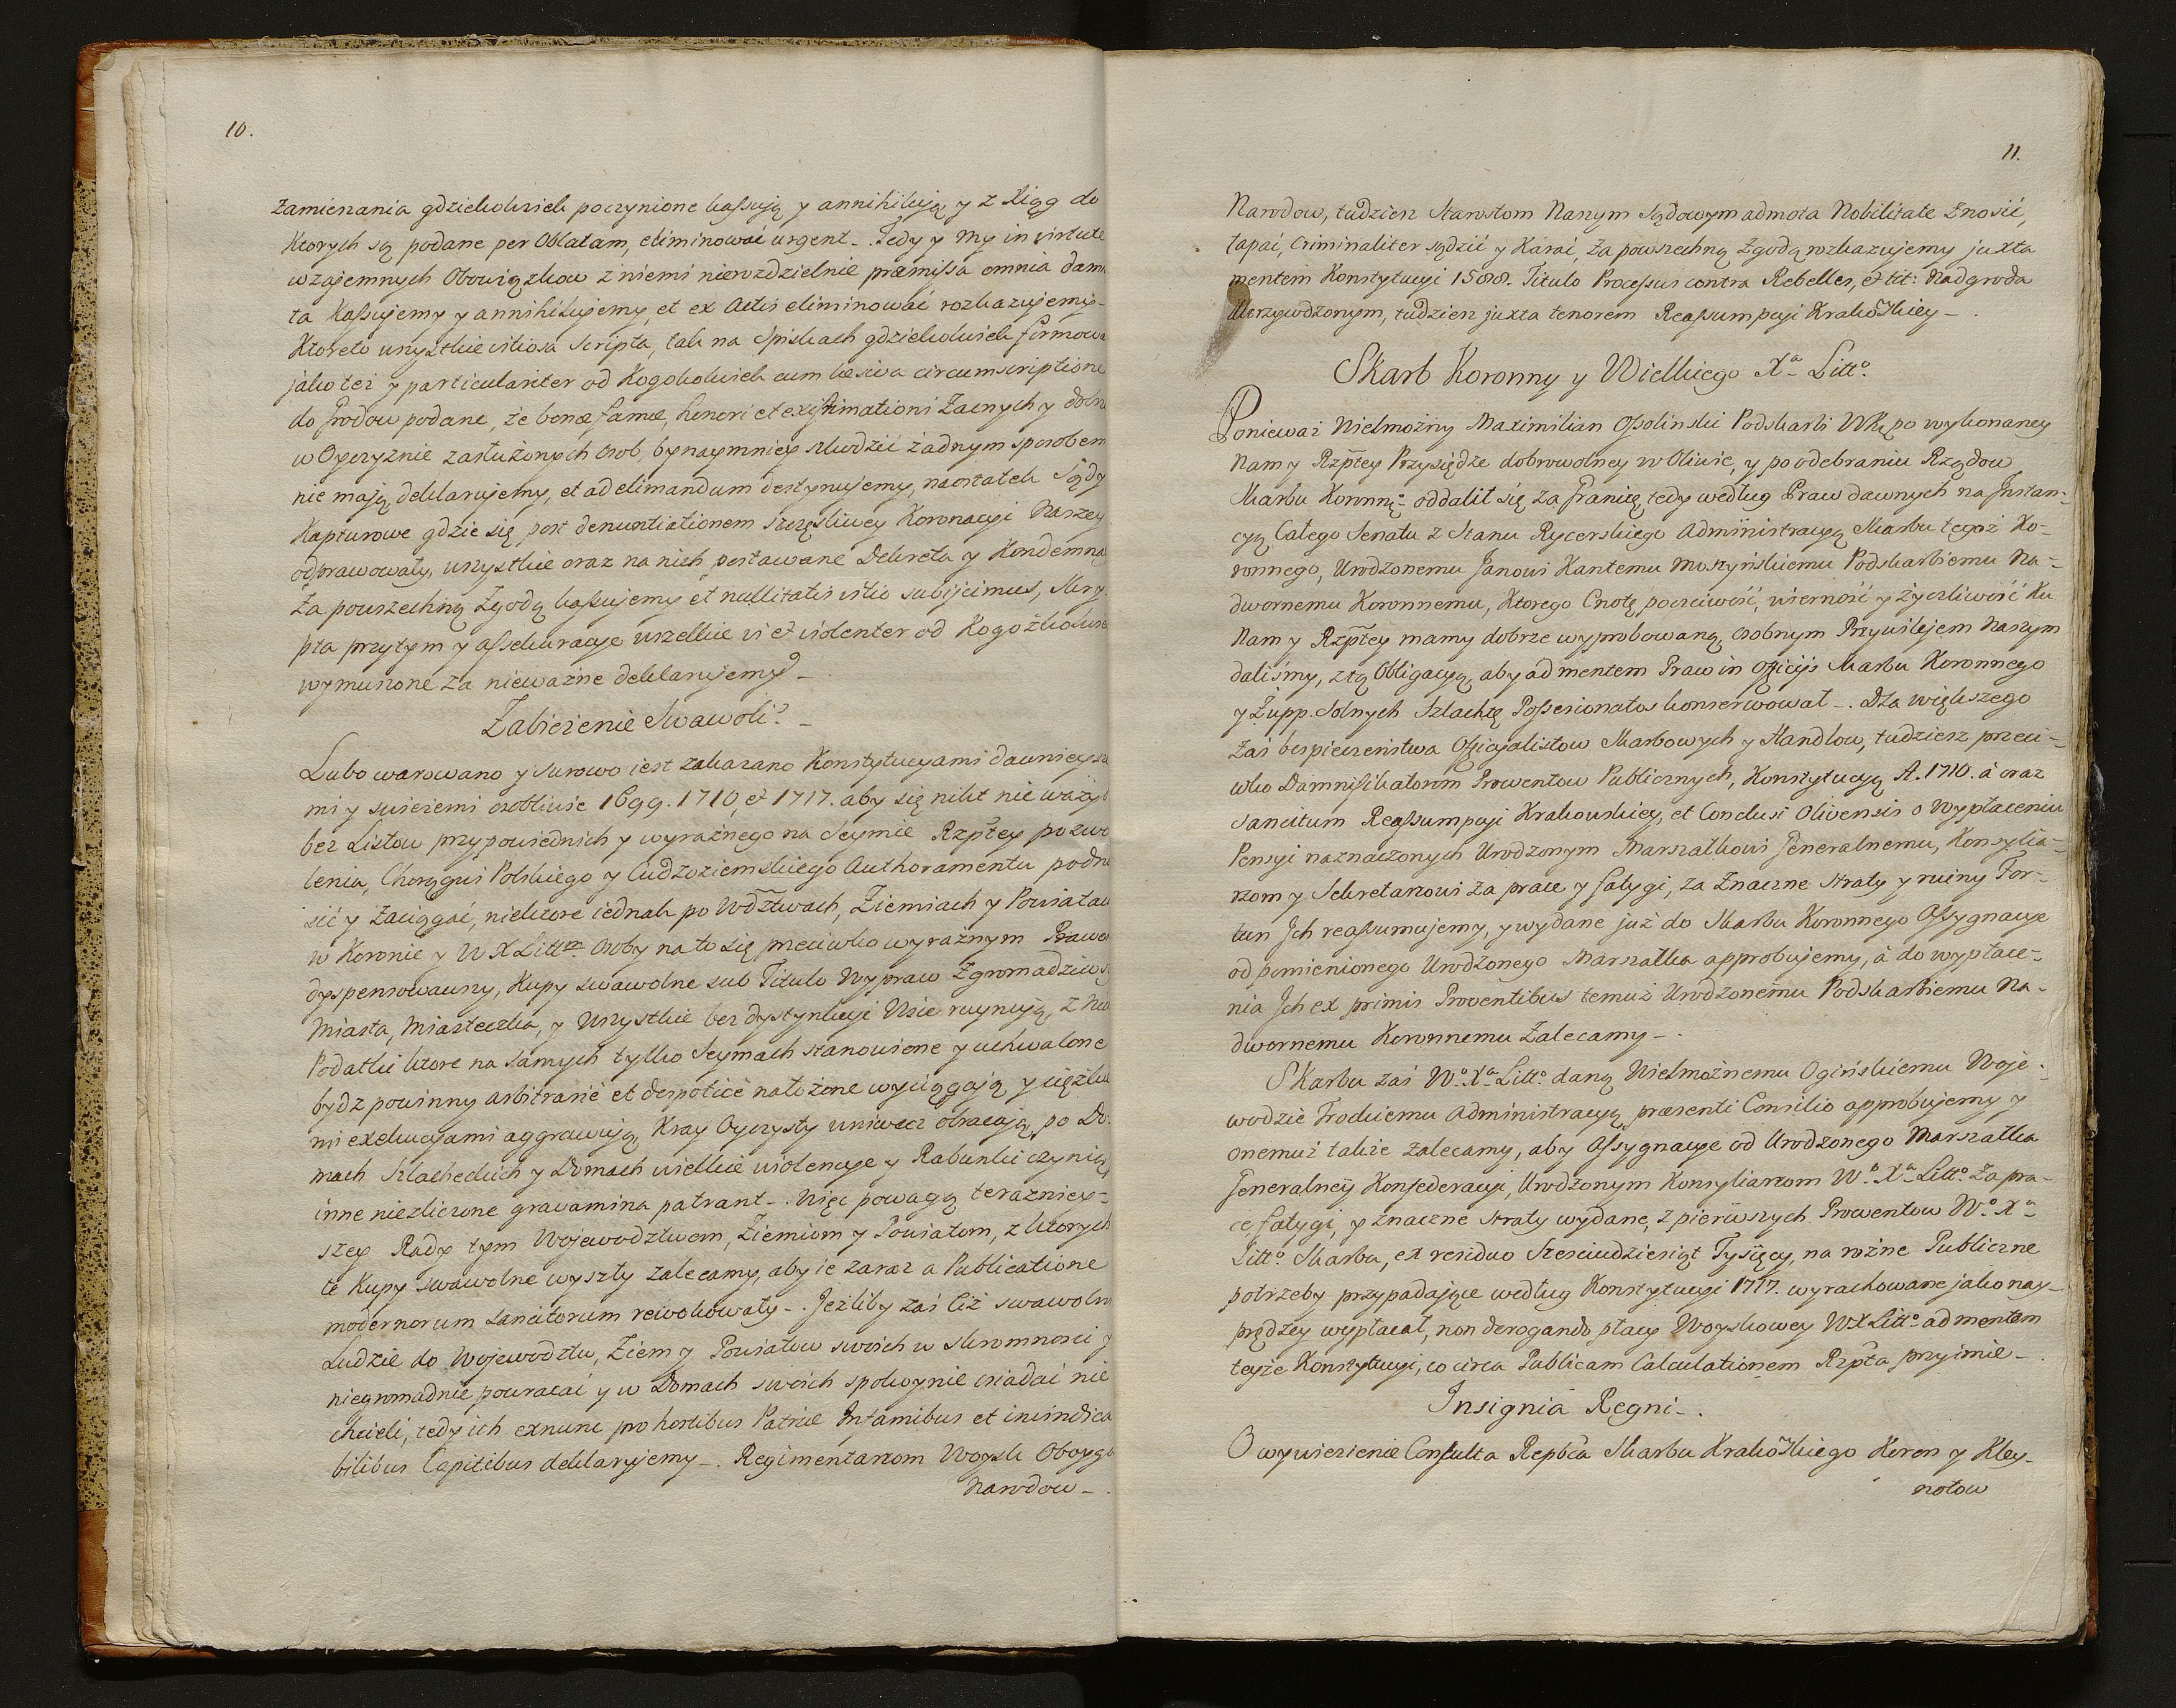 10.
zamierzania gdziekolwiek poczynione kassują y annihilują, y z Xiąg do
Ktorych są podane per Oblatam, eliminować urgent -. Tedy y My in virtute
wzajemnych Obowiązkow z niemi nierozdzielnie præmissa omnia damn
ta Kassujemy y annihilujemy, et ex Actis eliminować rozkazujemy -
Ktoreto wszystkie vitiosa Scripta, tak na Spiskach gdziekolwiek firmowa
jako też y particulariter od Kogokolwiek cum læsiva circumscriptione
do Grodow podane, że bonæ famæ, honori et existimationi Zacnych y dobrz
w Oyczyznie zasłużonych osob, bynaymniey szkodzić żadnym sposobem
nie mają deklarujemy, et ad elimandum destynujemy, naostatek Sądy
Kapturowe gdzie się post denuntiationem szczęśliwey Koronacyi Naszey
odprawowały, wszystkie oraz na nich postawane Dekreta y Kondemna
Za powszechną Zgodą kassujemy et nullitatis vitio subijcimus, Skry
pta przytym y assekuracye wszelkie vi et violenter od Kogożkolwie
wymuszone za nieważne deklarujemy -
Zabieżenie Swawoli. -
Lubo warowano y surowo iest zakazano Konstytucyami dawnieysze
mi y swieżemi osobliwie 1699. 1710, et 1717. aby się nikt nie ważył
bez Listow przypowiednich y wyraźnego na Seymie Rzptey pozwo
lenia, Chorągwi Polskiego y Cudzoziemskiego Authoramentu podno
sić y Zaciągać, niektore iednak po Wdztwach, Ziemiach y Powiatach
w Koronie y W X Litt Osoby na to się przeciwko wyraźnym Prawom
dyspensowawszy, Kupy swawolne sub Titulo Wypraw Zgromadziwszy
Miasta, Miasteczka, y Wszystkie bez dystynkcyi Wsie ruynują, z
Podatki ktore na samych tylko Seymach stanowione y uchwalone
bydz powinny arbitrarié et despoticé nałożone wyciągają y ciężki
mi exekucyami aggrawują, Kray Oyczysty wniwecz obracają, po Do-
mach Szlacheckich y Domach wielkie violencye y Rabunki czynią,
inne niezliczone gravamina patrant -. Więc powagą terazniey-
szey Rady tym Wojewodztwom, Ziemiom y Powiatom, z ktorych
te Kupy swawolne wyszły zalecamy, aby ie zaraz a Publicatione
modernorum sancitorum rewokowały -. Jeżliby zaś Ciż swawolni
Ludzie do Wojewodztw, Ziem y Powiatow swoich w skromnosci y
niegromadnie powracać y w Domach swoich spokoynie osiadać nie
chcieli, tedy ich exnunc pro hostibus Patriæ Infamibus et invindica
bilibus Capitibus deklarujemy -. Regimentarzom Woysk Oboyga
Narodow -
11.
Narodow, tudziesz Starostom Naszym Sądowym admota Nobilitate Znosić,
łapać, criminaliter sądzić y Karać, Za powszechną Zgodą rozkazujemy juxta
mentem Konstytucyi 1588. Titulo Processus contra Rebelles, et tit: Nadgroda
Ukrzywdzonym, tudziesz juxta tenorem Reassumpcyi Krakoskiey -.
Skarb Koronny y Wielkiego Xa Litto.
Ponieważ Wielmożny Maximilian Ossolinski Podskarbi WKę po wykonaney
Nam y Rzptey Przysiędze dobrowolney w Oliwie, y po odebraniu Rządow
Skarbu Koronnę oddalił się za Granicę, tedy według Praw dawnych na Jnstan-
cyą Całego Senatu z Stanu Rycerskiego Administracyą Skarbu tegoż Ko-
ronnego, Urodzonemu Janowi Kantemu Moszyńskiemu Podskarbiemu Na-
dwornemu Koronnemu, Ktorego Cnotę, poczciwość, wierność y życzliwość Ku
Nam y Rzptey mamy dobrze wyprobowaną, osobnym Przywilejem Naszym
daliśmy, z tą Obligacyą, aby ad mentem Praw in Officijs Skarbu Koronnego
y Żupp Solnych Szlachtę Possesionatos konserwował -. Dla większego
zaś bespieczeństwa Officyalistow Skarbowych y Handlow, tudziesz przeci-
wko Damnifikatorom Prowentow Publicznych, Konstytucyą A. 1710. á oraz
Sancitum Reassumpcyi Krakowskiey, et Conclusi Olivensis o Wypłaceniu
Pensyi naznaczonych Urodzonym Marszałkowi Generalnemu, Konsylia-
rzom y Sekretarzowi za prace y fatygi, za Znaczne straty y ruiny For-
tun Jch reassumujemy, y wydane już do Skarbu Koronnego Assygnacye
od pomienionego Urodzonego Marszałka approbujemy, á do wypłace-
nia Jch ex primis Proventibus temuż Urodzonemu Podskarbiemu Na-
dwornemu Koronnemu Zalecamy -.
Skarbu zaś Wo. Xa Litto. daną Wielmożnemu Ogińskiemu Woje-
wodzie Trockiemu Administracyą, præsenti Consilio approbujemy y
onemuż także zalecamy, aby Assygnacye od Urodzonego Marszałka
Generalney Konfederacyi, Urodzonym Konsyliarzom Wo. Xa Litto. Za pra-
ce fatygi, y znaczne straty wydane, z pierwszych Prowentow Wo. Xa
Litto. Skarbu, ex residuo Sześciudziesiąt Tysięcy, na rożne Publiczne
potrzeby przypadające według Konstytucyi 1717. wyrachowane jako nay-
prędzey wypłacał, non derogando płacy Woyskowey WXLitto ad mentem
teyże Konstytucyi, co circa Publicam Calculationem Rzpta przyimie -.
Insignia Regni -.
O wywiezienie Consulta Repbca Skarbu Krakoskiego Koron y Kley-
notow